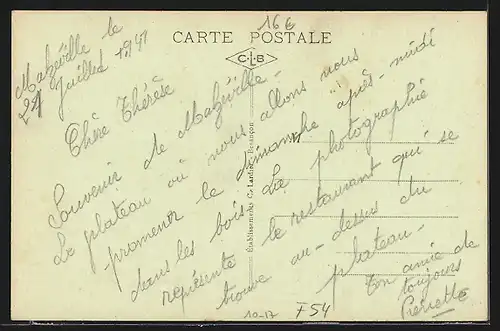 16 €
CARTE POSTALE
C.L.B
Malzéville le
24 Juillet 1941
Chère Thérèse
Souvenir de Malzéville -
Le plateau où nous allons nous
promener le dimanche après-midi
dans les bois. La photographie
représente le restaurant qui se
trouve au-dessus du
plateau -
Ton amie de
toujours
Pierrette
Etablissements C. Lardier - Besançon
10-17
F54